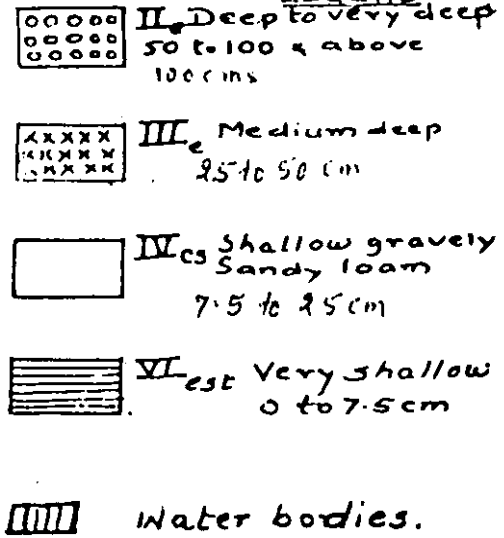 II e Deep to very deep
50 to 100 & above
100 cms
III e Medium deep
25 to 50 cm
IV cs Shallow gravely
Sandy loam
7.5 to 25 cm
VI est Very shallow
0 to 7.5 cm
Water bodies.